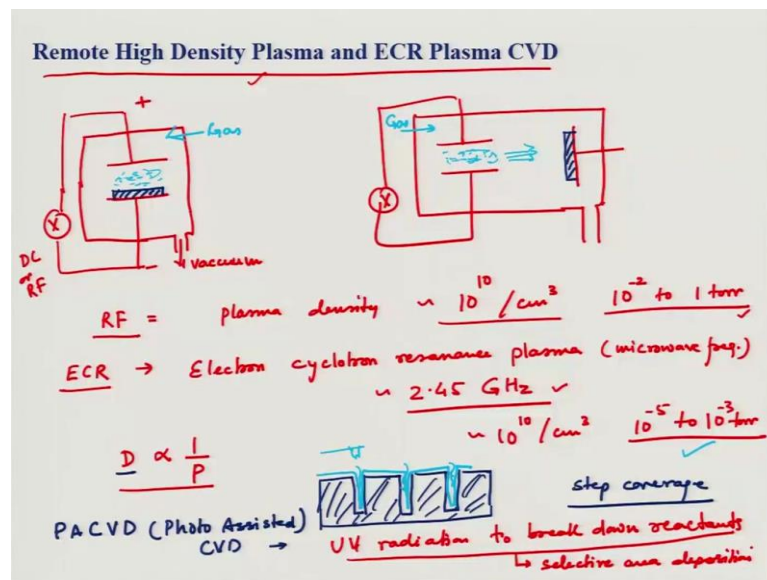 Remote High Density Plasma and ECR Plasma CVD
+
Gas
X
DC
or
RF
-
vacuum
Gas
X
RF = plasma density ~ 10^10 /cm^3 10^-2 to 1 torr
ECR → Electron cyclotron resonance plasma (microwave freq.)
~ 2.45 GHz ✓
~ 10^10 /cm^3 10^-5 to 10^-3 torr
D ∝ 1/P
step coverage
PACVD (Photo Assisted) CVD → UV radiation to break down reactants
↳ selective area deposition